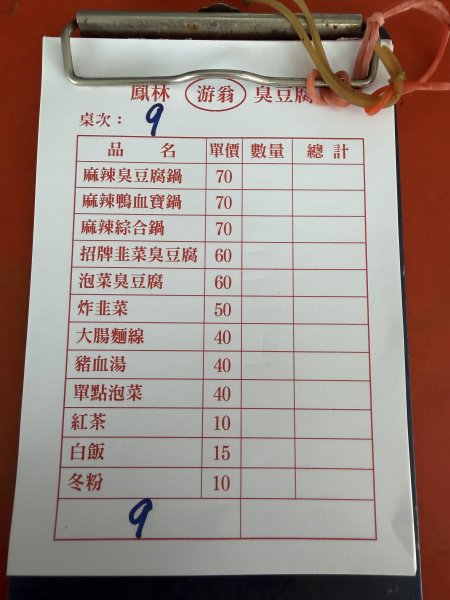 鳳林 游翁 臭豆腐
桌次：9
品名 單價 數量 總計
麻辣臭豆腐鍋 70
麻辣鴨血寶鍋 70
麻辣綜合鍋 70
招牌韭菜臭豆腐 60
泡菜臭豆腐 60
炸韭菜 50
大腸麵線 40
豬血湯 40
單點泡菜 40
紅茶 10
白飯 15
冬粉 10
9